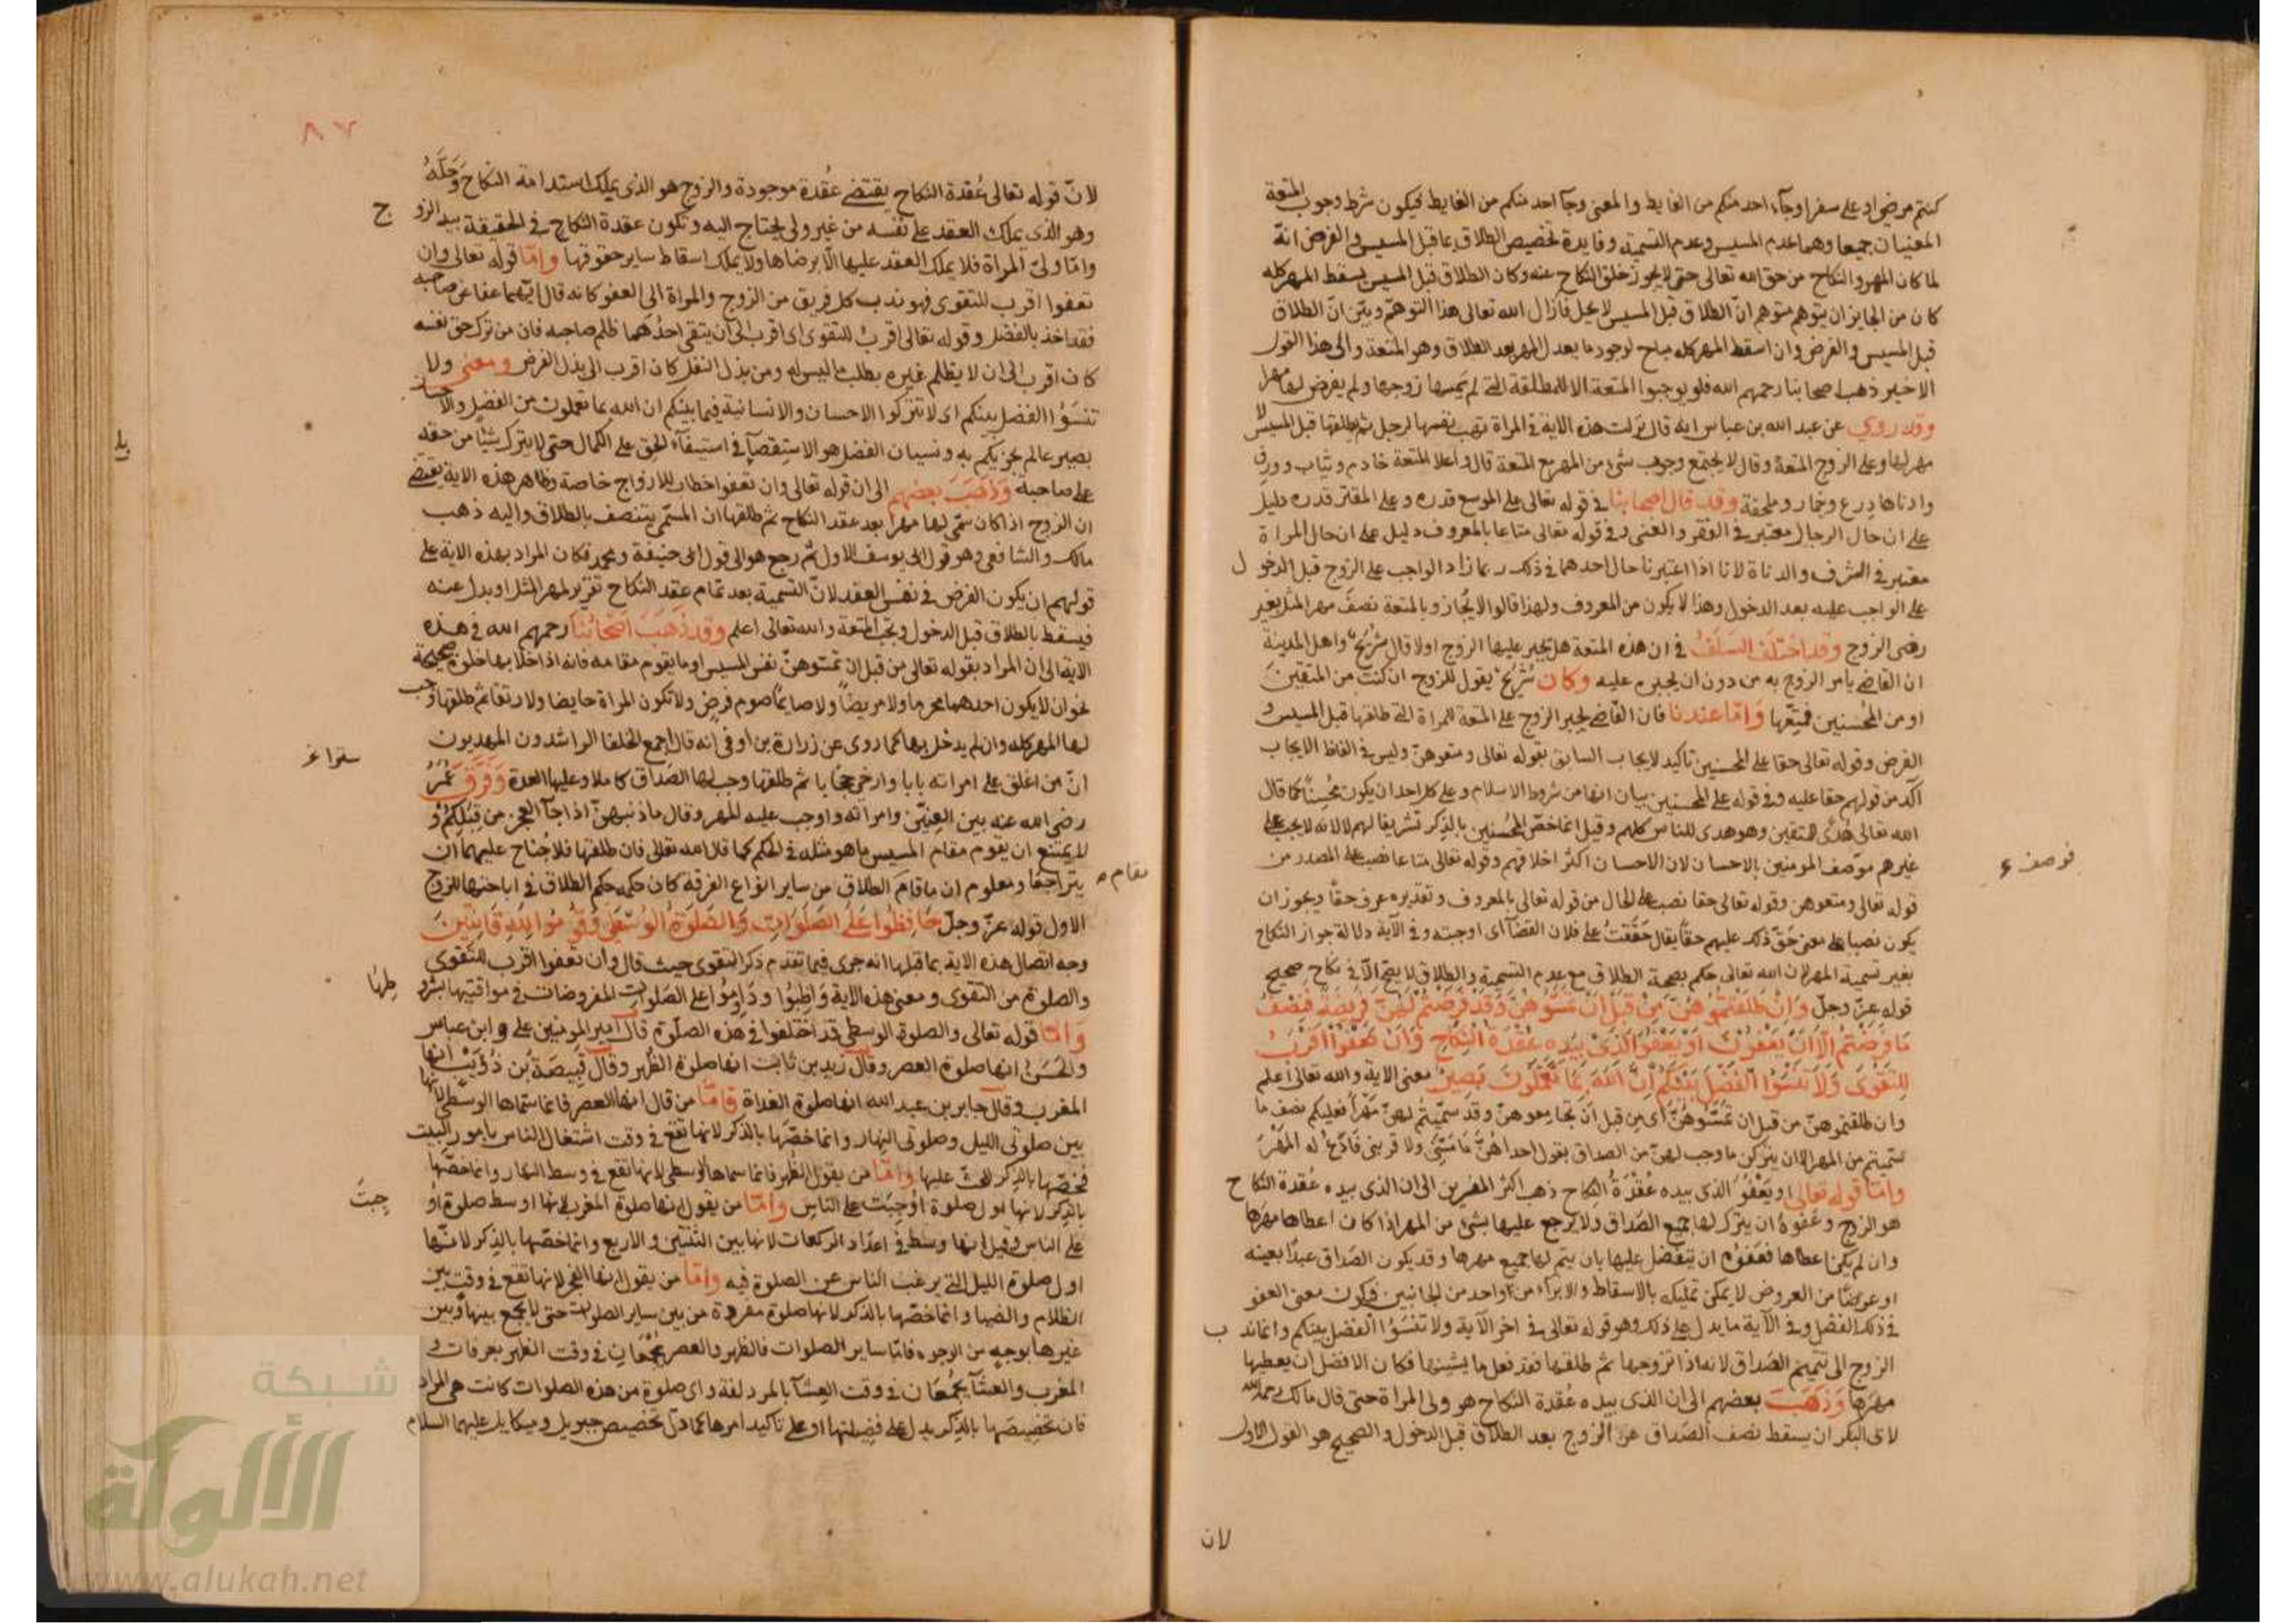 كنتم مرضى او على سفر او جآء احد منكم من الغايط والمعنى وجآ احد منكم من الغايط فيكون شرط وجوب المتعة
المعنيان جميعا وهما عدم المسيس وعدم التسمية وفايدة تخصيص الطلاق بما قبل المسيس والفرض انه
لما كان المهر والنكاح من حق الله تعالى حتى لا يجوز خلو النكاح عنه وكان الطلاق قبل المسيس يسقط المهر كله
كان من الجايز ان يتوهم متوهم انّ الطلاق قبل المسيس لا يحل فازال الله تعالى هذا التوهم وبيّن انّ الطلاق
قبل المسيس والفرض وان اسقط المهر كله مباح لوجود ما بعدل المهر بعد الطلاق وهو المتعة والى هذا القول
الاخير ذهب اصحابنا رحمهم الله فلو يوجبوا المتعة الا للمطلقة التى لم يمسها زوجها ولم يفرض لها مهرا
وقد روي عن عبد الله بن عباس انه قال نزلت هذه الاية في المراة تهب نفسها لرجل ثم يطلقها قبل المسيس لا
مهر لها وعلى الزوج المتعة وقال لا يجتمع وجوب شئ من المهر مع المتعة قال واعلا المتعة خادم وثياب وورق
وادناها درع وخمار وملحفة وقد قال اصحابنا في قوله تعالى على الموسع قدره وعلى المقتر قدره دليل
على ان حال الرجال معتبر في الفقر والغنى وفي قوله تعالى متاعا بالمعروف دليل على ان حال المراة
معتبر في الشرف والدناة لانا اذا اعتبرنا حال احدهما في ذلك ربما زاد الواجب على الزوج قبل الدخول
على الواجب عليه بعد الدخول وهذا لا يكون من المعروف ولهذا قالوا لا يُجاز وبالمتعة نصف مهر المثل بغير
رضى الزوج وقد اختلف السلف في ان هذه المتعة هل يجبر عليها الزوج اولا قال شريح واهل المدينة
ان القاضى يامر الزوج به من دون ان يجبره عليه وكان شريح يقول للزوج ان كنت من المتقين
او من المحسنين فمتّعها وامّا عندنا فان القاضى يجبر الزوج على المتعة للمراة التى طلقها قبل المسيس و
الفرض وقوله تعالى حقا على المحسنين تاكيد لايجاب السابق بقوله تعالى ومتعوهنّ وليس في الفاظ الايجاب
آكد من قولهم حقا عليه وفي قوله على المحسنين بيان انها من شروط الاسلام وعلى كل احد ان يكون محسنًا كما قال
الله تعالى هدًى للمتقين وهو هدى للناس كلهم وقيل انما خصّ المحسنين بالذِكر تشريفا لهم لا لانه لا يجب على
غيرهم موّصف المومنين بالاحسان لان الاحسان اكثر اخلاقهم وقوله تعالى متاعا نصب على المصدر من
فوصف
قوله تعالى ومتعوهن وقوله تعالى حقا نصب على الحال من قوله تعالى بالمعروف وتقديره عرف حقًا ويجوز ان
يكون نصبا على معنى حَقَّ ذلك عليهم حقًا يقال حَقَّقتُ على فلان القضآ اى اوجبته وفي الآية دلالة جواز النكاح
بغير تسمية المهر لان الله تعالى حكم بصحة الطلاق مع عدم التسمية والطلاق لا يقع الّا في نكاح صحيح
قوله عزّ وجلّ وَاِنْ طَلَّقْتُمُوهُنَّ مِنْ قَبْلِ اَنْ تَمَسُّوهُنَّ وَقَدْ فَرَضْتُمْ لَهُنَّ فَرِيضَةً فَنِصْفُ
مَا فَرَضْتُمْ اِلَّا اَنْ يَعْفُونَ اَوْ يَعْفُوَا الَّذِىْ بِيَدِه عُقْدَةُ النِّكَاحِ وَاَنْ تَعْفُوْا اَقْرَبُ
لِلتَّقْوَى وَلَا تَنْسَوُا الْفَضْلَ بَيْنَكُمْ اِنَّ اللّٰهَ بِمَا تَعْمَلُونَ بَصِيرٌ معنى الاية والله تعالى اعلم
وان طلقتموهنّ من قبل ان تمسّوهُنَّ اى من قبل اَن تجامِعوهنّ وقد سمّيتُم لهنّ مَهْرًا فعليكم نصف ما
سمّيتم من المهر الا ان يتركن ما وجب لهنّ من الصداق بقول احداهُنَّ مَا مَسَّنِى ولا قربنى فَادَعُ له المَهْرَ
وامّا قوله تعالى او يَعْفُوَ الذى بيده عُقْدَةُ النكاح ذهب اكثر المفسرين الى ان الذى بيده عُقدة النكاح
هو الزوج وعَفوهُ ان يترك لها جميع الصَداق ولا يرجع عليها بشئ من المهر اذا كان اعطاها مهرَها
وان لم يكن اعطاها فعَفوُه ان يتفضل عليها بان يتم لها جميع مهرها وقد يكون الصَداق عبدًا بعينه
او عرضًا من العروض لا يمكن تمليكه بالاسقاط والابراء من واحد من الجانبين فيكون معنى العفو
في ذلك الفضل وفي الآية ما يدل على ذلك وهو قوله تعالى في اخر الآية ولا تنسَوُا الفضل بينكم وانما ندب
الزوج الى تتميم الصَداق لانه اذا تزوجها ثم طلقها فقد فعل ما يشينها فكان الافضل ان يعطيها
مهرَها وَذَهَبَ بعضهم الى ان الذى بيده عُقدة النكاح هو ولى المراة حتى قال مالك رحمه الله
لاى البكر ان يسقط نصف الصَداق عن الزوج بعد الطلاق قبل الدخول والصحيح هو القول الاول
لان
٨٧
لانّ قوله تعالى عُقدة النكاح يقتضى عُقدة موجودة والزوج هو الذى يملك استدامة النكاح وَحَلَّهُ
وهو الذى يملك العقد على نفسه من غير ولى يحتاج اليه وتكون عقدة النكاح في الحقيقة بيد الزوج
وامّا ولىّ المراة فلا يملك العقد عليها الّا برضاها ولا يملك اسقاط ساير حقوقها وامّا قوله تعالى وان
تعفوا اقرب للتقوى فهو ندب كل فريق من الزوج والمراة الى العفو كانه قال ايّهما عفا عن صاحبه
فقد اخذ بالفضل وقوله تعالى اقربُ للتقوى اى اقرب الى ان يتقى احدُهما ظلم صاحبه فان من ترك حق نفسه
كان اقرب الى ان لا يظلم غيره بطلب ما ليس له ومن بذل النفل كان اقرب الى بذل الفرض ومعنى ولا
تنسَوُا الفضل بينكم اى لا تتركوا الاحسان والانسانية فيما بينكم ان الله بما تعملون من الفضل والاحسان
بصير عالم يجزيكم به ونسيان الفضل هو الاستِقصآ في استيفآء الحق على الكمال حتى لا يترك شيئًا من حقه
على صاحبه وَذَهَبَ بعضهم الى ان قوله تعالى وان تعفوا خطاب للازواج خاصة وظاهر هذه الاية يقتضى
ان الزوج اذا كان سمّى لها مهرا بعد عقد النكاح ثم طلقها ان المسمّى يتنصف بالطلاق واليه ذهب
مالك والشافعى وهو قول ابى يوسف الاول ثم رجع هو الى قول ابى حنيفة ومحمد فكان المراد بهذه الاية على
قولهم ان يكون الفرض في نفس العقد لانّ التسمية بعد تمام عقد النكاح تقرير لمهر المثل او بدل عنه
فيسقط بالطلاق قبل الدخول وتجب المتعة والله تعالى اعلم وقد ذهَبَ اصحَابُنَا رحمهم الله في هذه
الاية الى ان المراد بقوله تعالى من قبل ان تمسّوهنّ نفس المسيس او ما يقوم مقامه فانه اذا خلا بها خلوة صحيحة
نحو ان لا يكون احدهما محرما ولا مريضًا ولا صايمًا صوم فرض ولا تكون المراة حايضا ولا رتقا ثم طلقها وجب
لها المهر كله وان لم يدخل بها كما روى عن زرارة بن اوفى انه قال اجمع الخلفا الراشدون المهديون
انّ من اغلق على امراته بابا وارخى حجابا ثم طلقها وجب لها الصَداق كاملا وعليها العدة وَفَرَّقَ عُمَرُ
رضى الله عنه بين العِنِيّن وامراته واوجب عليه المهر وقال ما ذنبهنّ اذا جآ العجز من قِبَلِكُم و
لا يمتنع ان يقوم مقام المسيس ما هو مثله في الحكم كما قال الله تعالى فان طلقها فلا جُناح عليهما ان
يتراجعا ومعلوم ان ما قامَ الطلاق من ساير انواع الفرقة كان حكمه حكم الطلاق في اباحتها للزوج
مقام
الاول قوله عزّ وجلّ حَافِظُوا عَلَى الصَلَوَاتِ وَالصَّلٰوةِ الْوُسْطَىٰ وَقُومُوا لِلّٰهِ قَانِتِينَ
وجه اتصال هذه الاية بما قبلها انه جرى فيما تقدم ذكر التقوى حيث قال وان تعفوا اقرب للتقوى
والصلوة من التقوى ومعنى هذه الاية وَاظِبُوا ودَاوِمُوا على الصَلوات المفروضات في مواقيتها بشروطها
وَامّا قوله تعالى والصلوة الوسطى قد اختلفوا في هذه الصلٰوة قال امير المومنين على وابن عباس
والحَسَن انها صلوة العصر وقال زيد بن ثابت انها صلوة الظهر وقال قَبِيصَة بن ذُؤَيْب انها
المغرب وقال جابر بن عبد الله انها صلوة الغداة فامّا من قال انها العصر فانما سَمّاها الوسطى لانها
بين صلوتى الليل وصلوتى النهار وانما خصّها بالذكر لانها تقع في وقت اشتغال الناس بامور البيت
فخصّها بالذِكر للحثّ عليها وامّا من يقول الظهر فانما سماها الوسطى لانها تقع في وسط النهار وانما خصّها
بالذِكر لانها اول صلوة اوجِبَت على الناس وامّا من يقول انها صلوة المغرب لانها اوسط صلوة اوجبت
على الناس وقيل انها وسط في اعداد الركعات لانها بين الثنتين والاربع وانما خصّها بالذِكر لانّها
اول صلوة الليل التى يرغب الناس عن الصلوة فيه وامّا من يقول انها الفجر لانها تقع في وقت بين
الظلام والضيا وانما خصّها بالذكر لانها صلوة مفردة من بين ساير الصلوات حتى لا يجمع بينها وبين
غيرها بوجهٍ من الوجوه فامّا ساير الصلوات فالظهر والعصر يُجْمَعَانِ في وقت الظهر بعرفات و
المغرب والعشآ يُجمَعَان في وقت العِشآ بالمزدلفة واى صلوة من هذه الصلوات كانت هى المراد
فان تخصيصَها بالذِكر يدل على فضيلتها او على تاكيد امرها كما دلّ تخصيص جبريل وميكايل عليهما السلام
شبكة
الألوكة
www.alukah.net